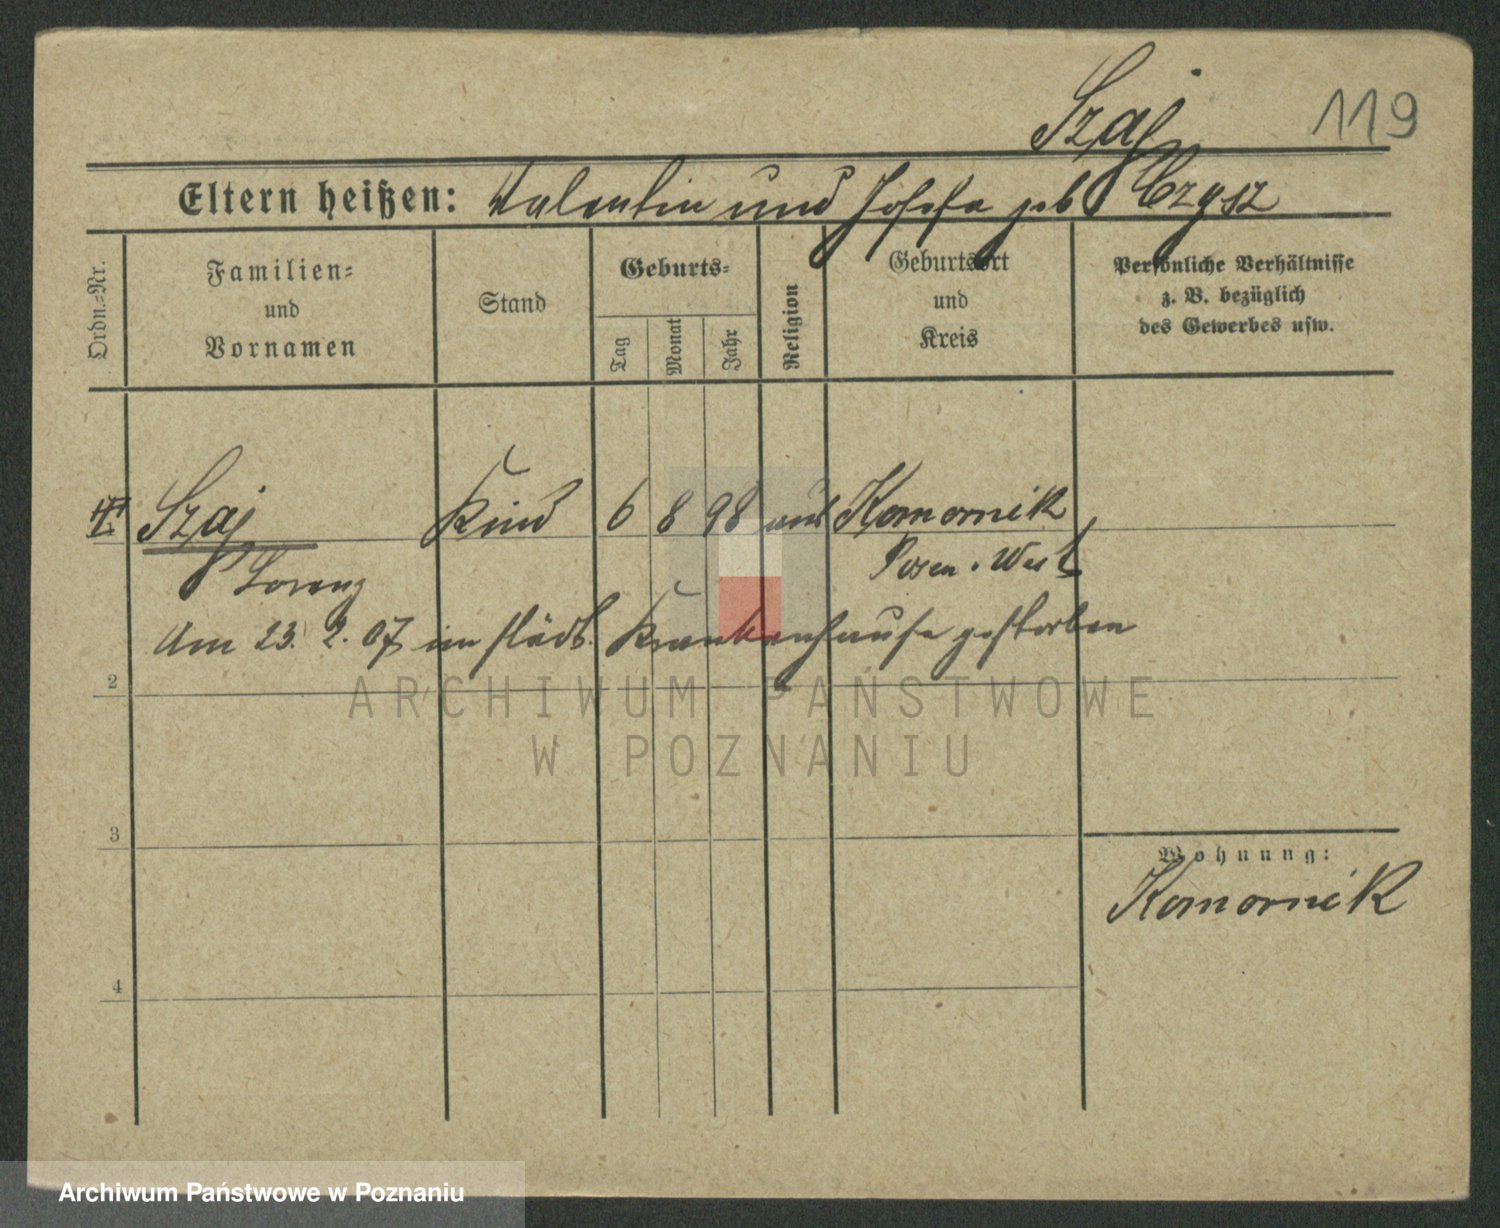 Szaj 119
Eltern heißen: Valentin und Josefa geb Czysz
Ordn.=Nr.
Familien=
und
Vornamen
Stand
Geburts=
Tag
Monat
Jahr
Religion
Geburtsort
und
Kreis
Persönliche Verhältnisse
z. B. bezüglich
des Gewerbes usw.
Szaj Kind 6 8 98 aus Komornik
Lorenz Posen. West
Am 23. 2. 07 im städt. Krankenhause gestorben
2
ARCHIWUM PAŃSTWOWE
W POZNANIU
3
Wohnung:
Komornik
4
Archiwum Państwowe w Poznaniu